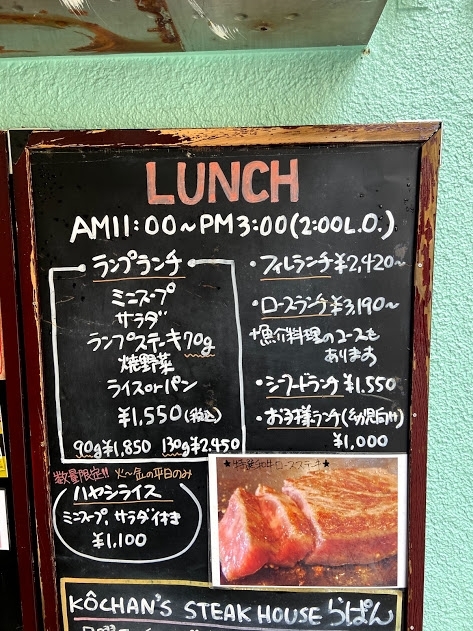 LUNCH
AM11:00~PM3:00(2:00L.O.)
ランプランチ
ミニスープ
サラダ
ランプステーキ70g
焼野菜
ライスorパン
¥1,550(税込)
90g¥1,850 130g¥2,450
数量限定!! 火~金の平日のみ
ハヤシライス
ミニスープ、サラダ付き
¥1,100
・フィレランチ¥2,420~
・ロースランチ¥3,190~
+魚介料理のコースも
あります
・シーフードランチ¥1,550
・お子様ランチ(幼児向け)
¥1,000
★特選和牛ロースステーキ★
KÔCHAN'S STEAK HOUSE らぱん